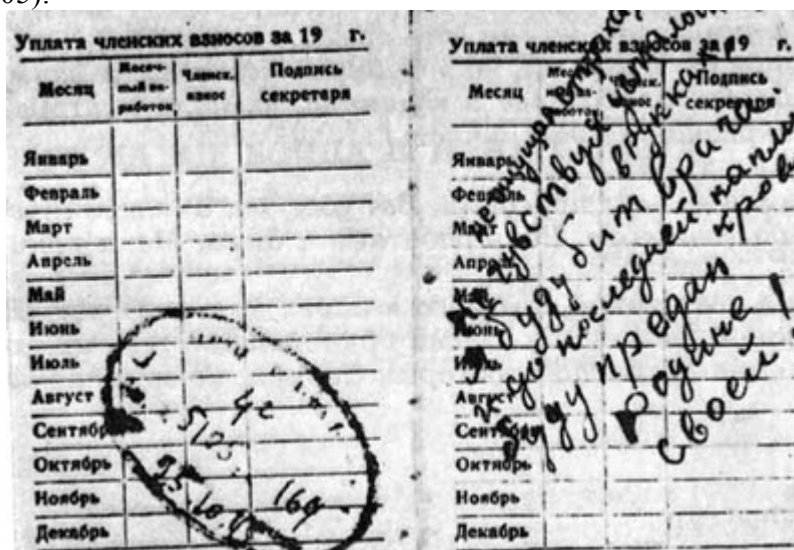 05).
Уплата членских взносов за 19 г.
Месяц
Месяч-
ный за-
работок
Членск.
взнос
Подпись
секретаря
Январь
Февраль
Март
Апрель
Май
Июнь
Июль
Август
Сентябрь
Октябрь
Ноябрь
Декабрь
42
5125
25.10.4
169
Уплата членских взносов за 19 г.
Месяц
Членск.
взнос
Подпись
секретаря
Январь
Февраль
Март
Апрель
Май
Июнь
Июль
Август
Сентябрь
Октябрь
Ноябрь
Декабрь
чувствуя усталости
в руках,
буду бить врага.
и до последней капли
крови
буду предан
Родине
своей!